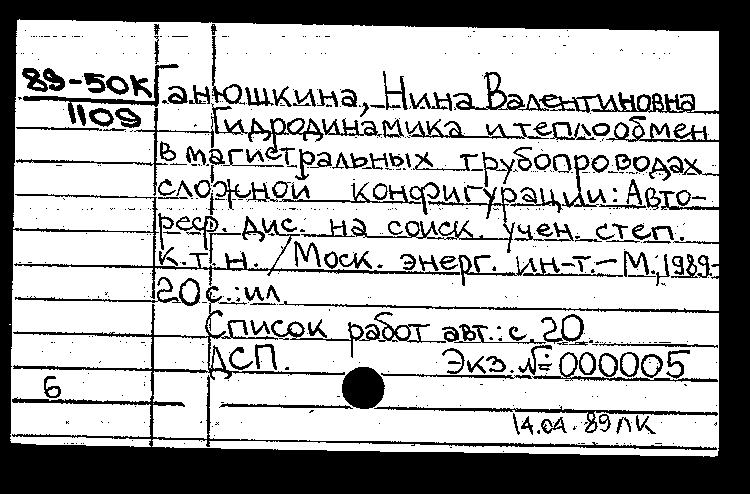 89-50К
1109
Ганюшкина, Нина Валентиновна
Гидродинамика и теплообмен
в магистральных трубопроводах
сложной конфигурации: Авто-
реф. дис. на соиск. учен. степ.
к.т.н. / Моск. энерг. ин-т. - М., 1989-
20 с.: ил.
Список работ авт.: с. 20.
ДСП. Экз. № 000005
6
14.04.89 ЛК